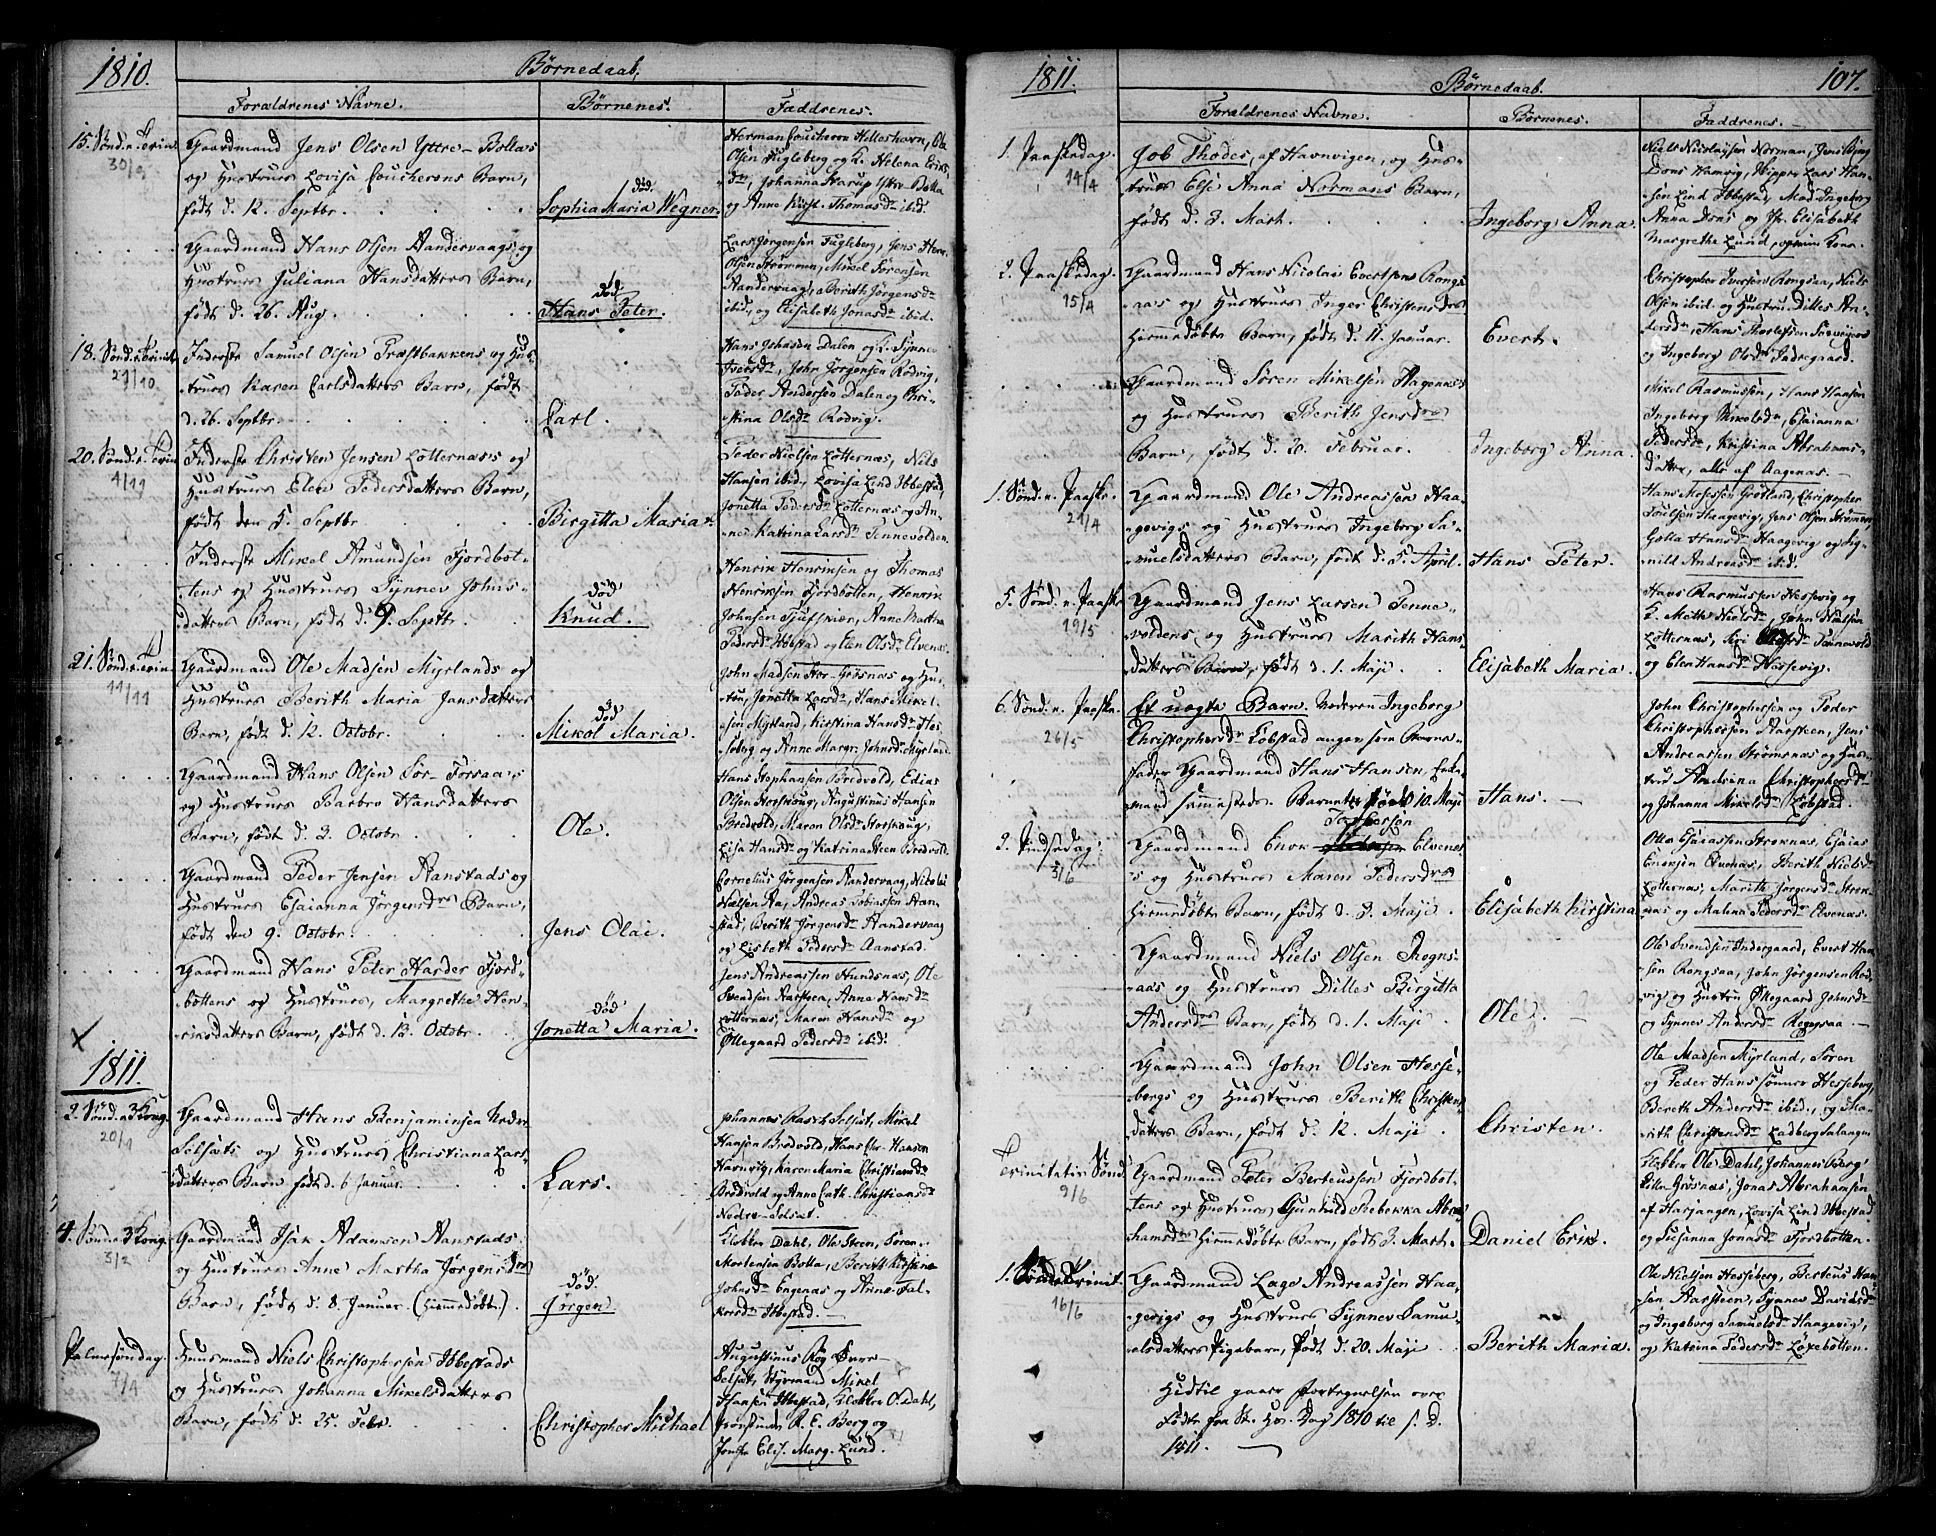 1810.
Børnedaab.
Forældrenes Navne.
Børnenes.
Faddrenes.
15. Sønd. n. Trin.
30/9
Gaardmand Jens Olsen Yttre-Bollas
og Hustrues Lovisa Coucherons Barn,
født d. 12. Septbr.
død.
Sophia Maria Wegner.
Herman Coucheron Helleshavn, Ole
Olsen Fugleberg og K. Helena Eriks-
dr, Johanna Starup Yttre-Bolla
og Anne Kirst. Thomasdr ibid.
Gaardmand Hans Olsen Aandervaags og
Hustrues Juliana Hansdatters Barn,
født d. 26. Aug.
død
Hans Peter.
Lars Jørgensen Fugleberg, Jens Henr.
Olsen Strømmen, Mikel Sørensen
Aandervaag, Berith Jørgensdr
ibid, og Elisabeth Jonasdr ibid.
18. Sønd. n. Trinit.
21/10
Inderste Samuel Olsen Præstbakkens og Hus-
trues Karen Carlsdatters Barn, født
d. 26. Septbr.
Carl.
Hans Johasen Dalen og K. Synnev
Iversdr, John Jørgensen Rødvig,
Peder Andersen Dalen og Chri-
stina Olsdr Rødvig.
20. Sønd. n. Trin.
4/11
Inderste Christen Jensen Løtternæss og
Hustrues Elen Pedersdatters Barn,
født den 5. Septbr.
Birgitta Maria.
Peder Nielsen Løtternæs, Niels
Hansen ibid, Lovisa Lind Ibbestad,
Jonetta Pedersdr Løtternæs og An-
ne Katrina Larsdr Tennevolden.
Inderste Mikel Amundsen Fjordbot-
tens og Hustrues Synnev Johns-
datters Barn, født d. 9. Septb.
død
Knud.
Henrik Henriksen og Thomas
Henriksen Fjordbotten, Henrik
Johnsen Anne Martha
Pedersdr Ibbestad og Elen Olsdr Elvenæs.
21. Sønd. n. Trin.
11/11
Gaardmand Ole Madsen Myrlands og
Hustrues Berith Maria Jansdatters
Barn, født d. 12. Octobr.
død
Mikol Maria.
John Madsen Stor-Grøsnæs og Hus-
tru, Jonetta Larsdr, Hans Mikel-
sen Myrland, Kirstina Hansdr Hes-
seberg og Anne Margr. Johnsdr Myrland.
Gaardmand Hans Olsen Sør-Forsaa's
og Hustrues Barbro Hansdatters
Barn, født d. 3. Octobr.
Ole.
Hans Stephansen Bredvold, Edias
Olsen Storskoug, Augustinus Hansen
Bredvold, Maren Olsdr Storskoug,
Lisa Hansdr og Katrina Steen Bredvold.
Gaardmand Peder Jensen Aanstads og
Hustrues Esaianna Jørgensdrs Barn,
født den 9. Octobr.
Jens Olai.
Cornelius Jørgensen Aandervaag, Nicolai
Nielsen Aa, Andreas Tobiassen Aan-
stad, Berith Jørgensdr Aandervaag
og Lisbeth Pedersdr Aanstad.
Gaardmand Hans Peter Harder Fjord-
bottens og Hustrues, Margrethe Hen-
riksdatters Barn, født d. 13. Octobr.
død
Jonetta Maria.
Jens Andreassen Hundsnæs, Ole
Svendsen Aarsteen, Anna Hansdr
Løtternæs, Maren Hansdr og
Øllegaard Pedersdr ibid.
X
1811.
2. Sønd. n. 3 Kong.
20/1
Gaardmand Hans Benjaminsen Nedre
Selsæts og Hustrues Christiana Lars-
datters Barn født d. 6 Januar.
Lars.
Johannes Rasch Selsæt, Mikel
Hansen Bredvold, Hans Chr. Hansen
Havnvig, Karen Maria Christiansdr
Bredvold og Anne Cath. Christiansdr
Nedre-Selsæt.
4. Sønd. n. 3 Kong.
3/2
Gaardmand Isak Adamsen Aanstads
og Hustrues Anne Martha Jørgensdrs
Barn, født d. 8. Januar. (hiemmedøbt.)
død.
Jørgen
Klokker Dahl, Ole Steen, Søren
Mortensen Bolla, Berith Kirstine
Johnsdr Engenæs og Anne Fal-
kersdr Ibbestad.
Palmesøndag.
7/4
Huusmand Niels Christophersen Ibbestads
og Hustrues Johanna Mikelsdatters
Barn, født d. 25. Febr.
Christopher Michael
Augustinus Røg Øvre-
Selsæt, Styrmand Mikel
Hansen Ibbestad, Klokker O. Dahl,
Provstinde R. E. Berg og
Jomfr Elis. Marg. Lund.
1811.
Børnedaab.
107.
Forældrenes Navne.
Børnenes.
Faddrenes.
1. Paaskedag.
14/4
Job Thodes, af Havnvigen, og Hus-
trues Else Anna Normans Barn,
født d. 3. Mart.
Ingeborg Anna.
Niels Nicolaysen Norman, Jens Bing
Dons Hamvig, Skipper Lars Han-
sen Lind Ibbestad, Mad. Ingeborg
Anna Dons og Jfr. Elisabeth
Margrethe Lund, og min Kone.
2. Paaskedag.
15/4
Gaardmand Hans Nicolai Evertsens Rongs-
aas og Hustrues Inger Christensdrs
hiemmedøbte Barn, født d. 11. Januar.
Evert.
Christopher Iversen Rongsaa, Niels
Olsen ibid og Hustru Dilles An-
dersdr, Hans Thorlefsen
og Ingeborg Olsdr Indregaard.
Gaardmand Søren Mikelsen Hagenæs
og Hustrues Berith Jensdrs
Barn, født d. 20. Februar.
Ingeborg Anna.
Mikel Rasmussen, Hans Hansen
Ingeborg Mikelsdr, Esaianna
Pedersdr, Kristina Abrahams-
datter, alle af Aagenæs.
1. Sønd. n. Paaske.
21/4
Gaardmand Ole Andreassen Haa-
gevigs og Hustrues Ingeborg Sa-
muelsdatters Barn, født d. 5. April.
Hans Peter.
Hans Mosessen Grøtland, Christopher
Poulsen Haagevig, Jens Olsen Strømmen,
Golla Hansdr Haagevig og Sig-
nild Andreasdr ibid.
5. Sønd. n. Paaske.
19/5
Gaardmand Jens Larsen Tenne-
voldens og Hustrues Marith Hans-
datters Barn, født d. 1. Maji.
Elisabeth Maria.
Hans Rasmussen Hessevig og
K. Meth Nielsdr, John Nielsen
Løtternæs, Siri Olsdr Tennevold
og Elen Hansdr Hessevig.
6. Sønd. n. Paaske.
26/5
Et uægte Barn. Moderen Ingeborg
Christophersdr Løbstad angav som Barne-
fader Gaardmand Hans Hansen, Enke-
mand sammesteds. Barnet er født 10. Maji
Hans.
John Christophersen og Peder
Christophersen Aarsteen, Jens
Andreassen Strømsnæs og Hus-
tru Andrina Christophersdr
og Johanna Mikelsdr Løbstad.
3. Pindsedag.
3/6
Torbersen
Gaardmand Enok Elvenes-
s og Hustrues Maren Pedersdrs
hiemmedøbte Barn, født d. 3. Maji.
Elisabeth Kirstina
Otto Esaiassen Stroknæs, Esaias
Enoksen Elvenæs, Berith Nielsdr
Løtternæs, Marith Jørgensdr Strok-
næs og Malena Pedersdr Elvenæs.
Gaardmand Niels Olsen Rongs-
aas og Hustrues Dilles Birgitta
Andersdrs Barn, født d. 1. Maji.
Ole.
Ole Svendsen Indergaard, Evert Han-
sen Rongsaa, John Jørgensen Rød-
vig og Hustru Øllegaard Johnsdr
og Synnev Andersdr Rongsaa.
Gaardmand John Olsen Hesse-
bergs og Hustrues Berith Christens-
datters Barn, født d. 12. Maji.
Christen.
Ole Madsen Myrland, Søren
og Peder Hans sønner Hesseberg,
Berith Andersdr ibid., og Ma-
rith Christensdr Ladberg Salangen
Trinitatis Sønd.
9/6
Gaardmand Peter Berteussen Fjordbot-
tens og Hustrues Gunhild Rebekka Abra-
hamsdrs hiemmedøbte Barn, født 3. Mart.
Daniel Erik.
Klokker Ole Dahl, Johannes Berg
Lille-Grøsnæs, Jonas Abrahamsen
af Harjangen, Lovisa Lind Ibbestad
og Susanna Jonasdr Fjordbotten.
1. Sønd. n. Trinit.
16/6
Gaardmand Lage Andreassen Haa-
gevigs og Hustrues Synnev Samu-
elsdatters Pigebarn, født d. 20. Maji
Berith Maria.
Ole Nielsen Hesseberg, Berteus Han-
sen Aarsteen, Synnev Davidsdr
og Ingeborg Samuelsdr Haagevig,
og Katrina Pedersdr Løxebotten.
Hidtil gaaer Fortegnelsen over
Fødte fra St. Hs. Dag 1810 til s. D.
1811.